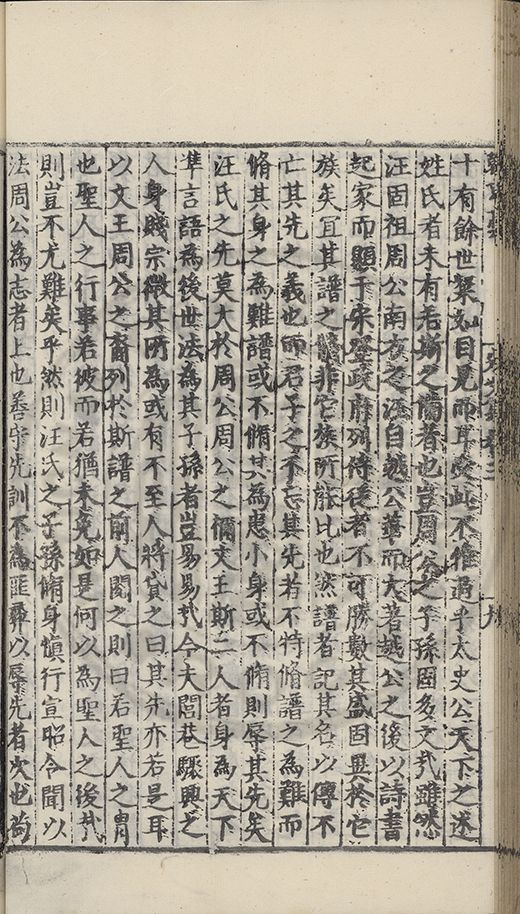 十有餘世粲如目見而耳受此不惟過乎太史公天下之述
姓氏者未有若斯之備者也豈周公之子孫固多文哉雖然
汪固祖周公南友之汪自越公華而大著越公之後以詩書
起家而顯于宋登政府列侍從者不可勝數其盛固異於它
族矣宜其譜之備非它族所能比也然譜者記其名以傳不
亡其先之義也而君子之不忘其先者不特脩譜之為難而
脩其身之為難譜或不脩其為患小身或不脩則辱其先矣
汪氏之先莫大於周公周公之禰文王斯二人者身為天下
準言語為後世法為其子孫者豈易易哉今夫閭巷驟興之
人身賤宗微其所為或有不至人將貸之曰其先亦若是耳
以文王周公之裔列於斯譜之前人閱之則曰若聖人之胄
也聖人之行事若彼而若猶未免如是何以為聖人之後哉
則豈不尤難矣乎然則汪氏之子孫脩身慎行宣昭令聞以
法周公為志者上也善守先訓不為匪彞以辱先者次也苟